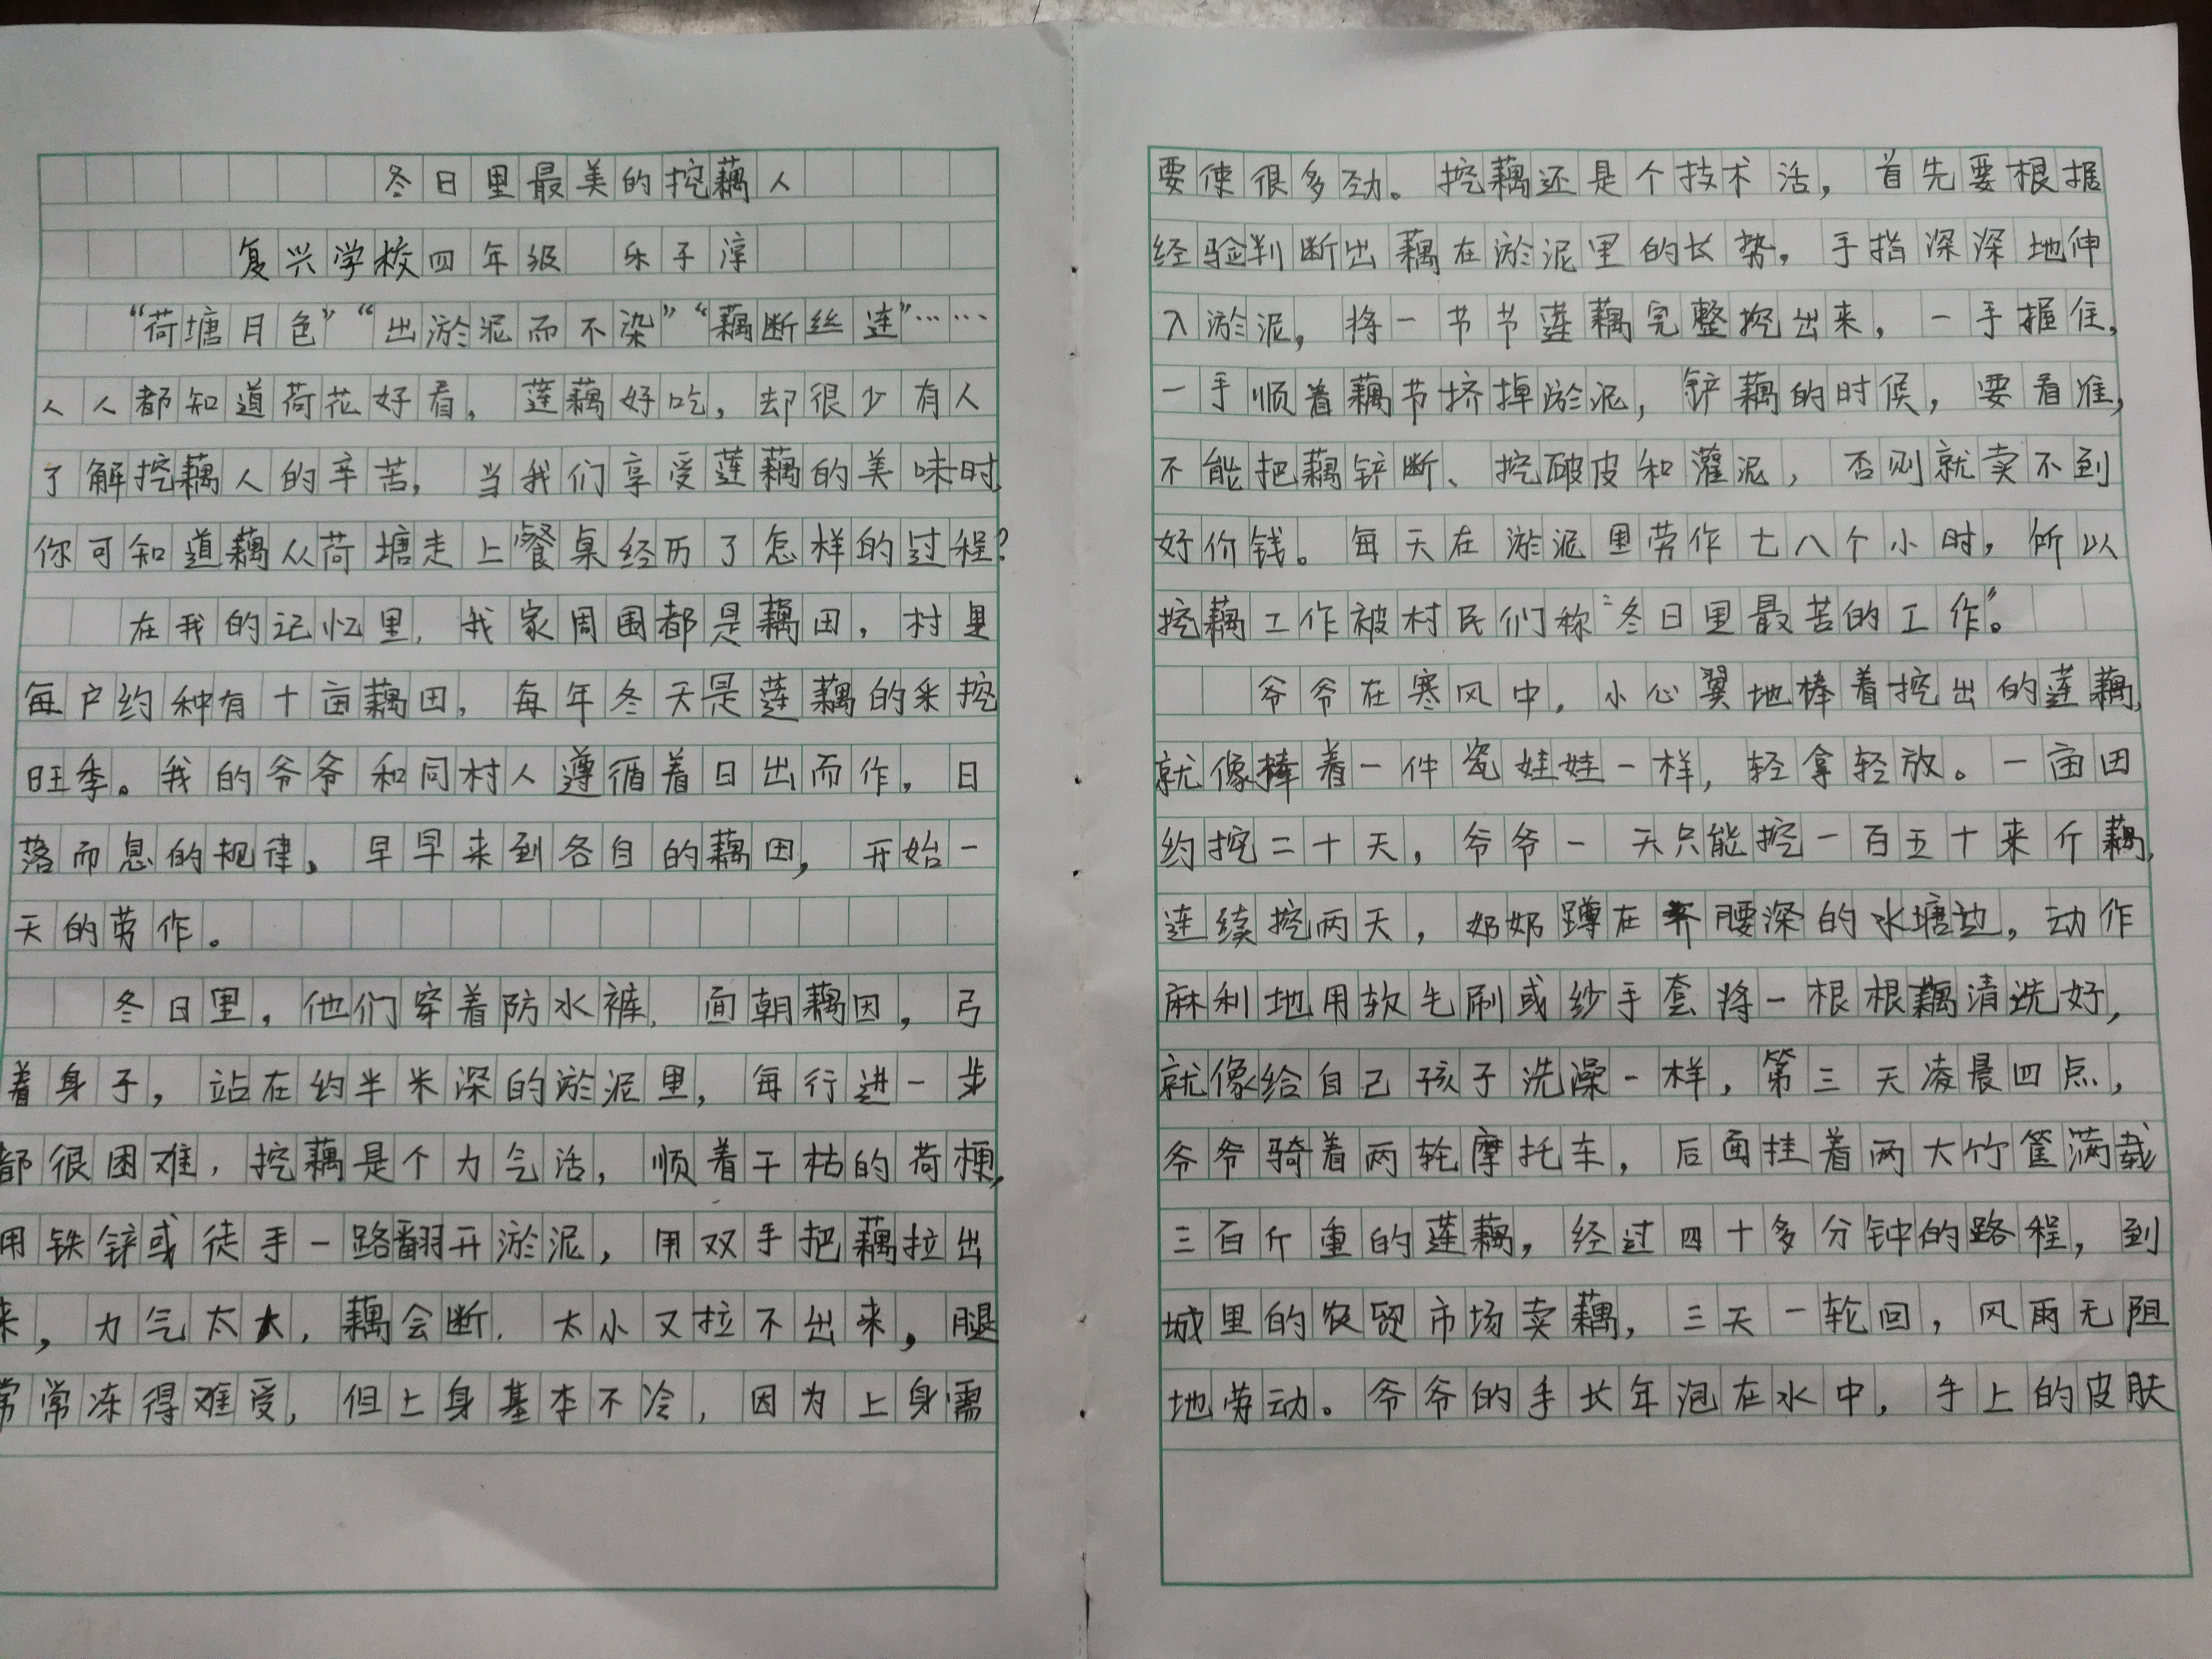 冬日里最美的挖藕人
复兴学校四年级 乐子淳
“荷塘月色”“出淤泥而不染”“藕断丝连”……
人人都知道荷花好看，莲藕好吃，却很少有人
了解挖藕人的辛苦，当我们享受莲藕的美味时，
你可知道藕从荷塘走上餐桌经历了怎样的过程？
在我的记忆里，我家周围都是藕田，村里
每户约种有十亩藕田，每年冬天是莲藕的采挖
旺季。我的爷爷和同村人遵循着日出而作，日
落而息的规律，早早来到各自的藕田，开始一
天的劳作。
冬日里，他们穿着防水裤，面朝藕田，弓
着身子，站在约半米深的淤泥里，每行进一步
都很困难，挖藕是个力气活，顺着干枯的荷梗，
用铁锌或徒手一路翻开淤泥，用双手把藕拉出
来，力气太大，藕会断，太小又拉不出来，腿
常常冻得难受，但上身基本不冷，因为上身需
要使很多劲。挖藕还是个技术活，首先要根据
经验判断出藕在淤泥里的长势，手指深深地伸
入淤泥，将一节节莲藕完整挖出来，一手握住，
一手顺着藕节挤掉淤泥，铲藕的时候，要看准，
不能把藕锌断、挖破皮和灌泥，否则就卖不到
好价钱。每天在淤泥里劳作七八个小时，所以
挖藕工作被村民们称“冬日里最苦的工作”。
爷爷在寒风中，小心翼地棒着挖出的莲藕，
就像棒着一件瓷娃娃一样，轻拿轻放。一亩田
约挖二十天，爷爷一天只能挖一百五十来斤藕，
连续挖两天，奶奶蹲在齐腰深的水塘边，动作
麻利地用软毛刷或纱手套将一根根藕清洗好，
就像给自己孩子洗澡一样，第三天凌晨四点，
爷爷骑着两轮摩托车，后面挂着两大竹筐满载
三百斤重的莲藕，经过四十多分钟的路程，到
城里的农贸市场卖藕，三天一轮回，风雨无阻
地劳动。爷爷的手长年泡在水中，手上的皮肤